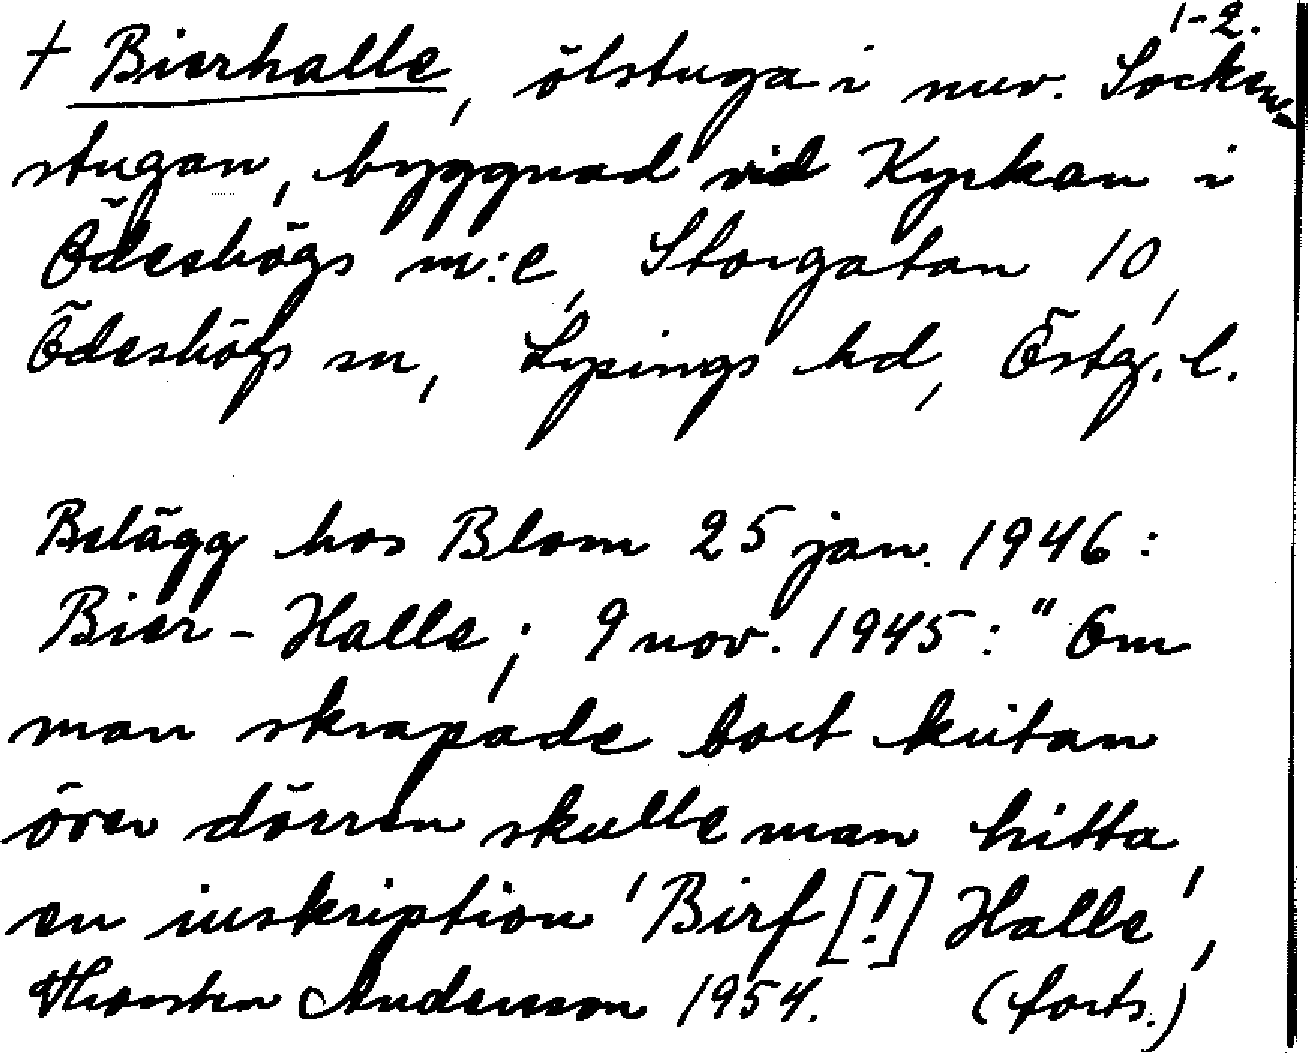 1-2.
† Bierhalle, ölstuga i nuv. Socken-
stugan, byggnad vid Kyrkan i
Ödeshögs m:e, Storgatan 10,
Ödeshögs sn, Lysings hd, Östg. l.
Belägg hos Blom 25 jan. 1946:
Bier-Halle; 9 nov. 1945: "Om
man skrapade bort kritan
över dörren skulle man hitta
en inskription 'Birf [!] Halle',
Thorsten Andersson 1954. (forts.)